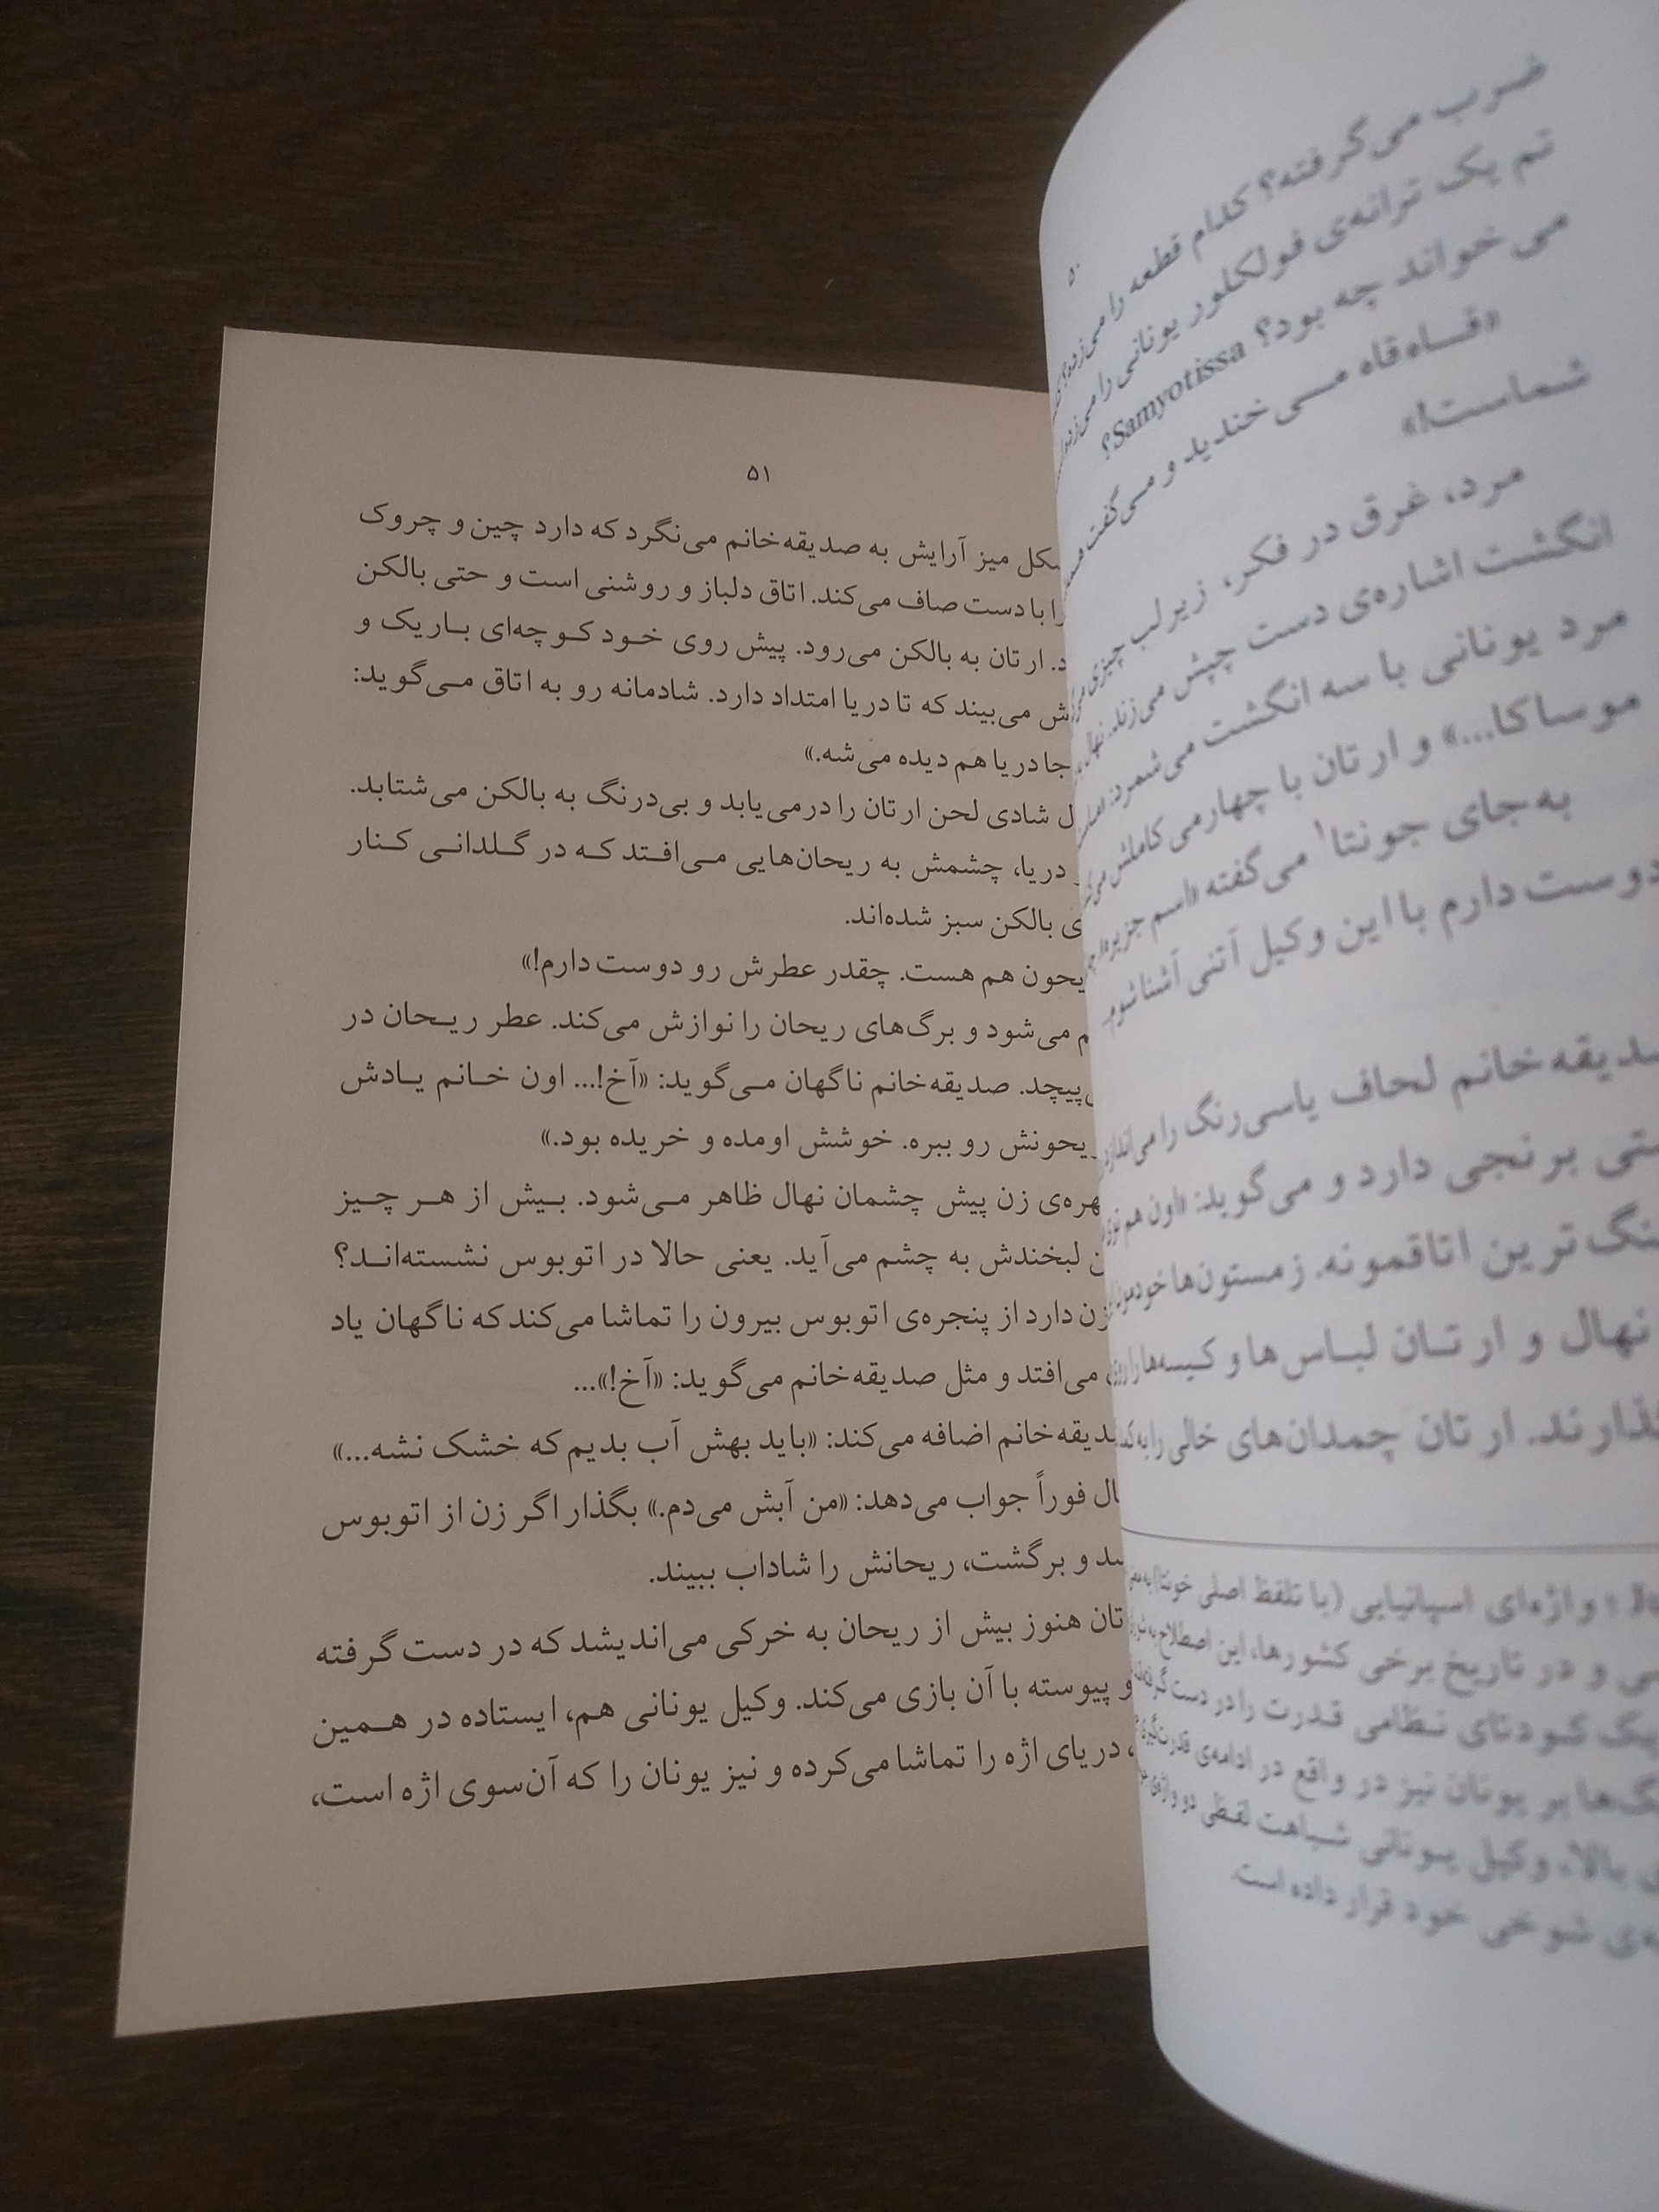 ۵۰
ضرب می‌گرفته؟ کدام قطعه را می‌زده؟
تم یک ترانه‌ی فولکلور یونانی را می‌زد
می‌خواند چه بود؟ Samyotissa؟
«قاه‌قاه می‌خندید و می‌گفت
شماست!»
مرد، غرق در فکر، زیرلب چیزی
انگشت اشاره‌ی دست چپش می‌زند. نهال
مرد یونانی با سه انگشت می‌شمرد:
موساکا...» و ارتان با چهارمی کاملش
به‌جای جونتا۱ می‌گفته «اسم جزیره
دوست دارم با این وکیل آتنی آشنا شوم.
صدیقه‌خانم لحاف یاسی‌رنگ را می‌اندازد
برنجی دارد و می‌گوید: «اون هم توی
ترین اتاقمونه. زمستون‌ها خودمون
نهال و ارتان لباس‌ها و کیسه‌ها را روی
ارتان چمدان‌های خالی را به
واژه‌ای اسپانیایی (با تلفظ اصلی خونتا)
و در تاریخ برخی کشورها، این اصطلاح به
یک کودتای نظامی قدرت را در دست
بر یونان نیز در واقع در ادامه‌ی قدرت‌گیری
بالا، وکیل یونانی شباهت لفظی دو واژه‌ی
شوخی خود قرار داده است.
۵۱
میز آرایش به صدیقه‌خانم می‌نگرد که دارد چین و چروک
را با دست صاف می‌کند. اتاق دلباز و روشنی است و حتی بالکن
ارتان به بالکن می‌رود. پیش روی خود کوچه‌ای باریک و
می‌بیند که تا دریا امتداد دارد. شادمانه رو به اتاق می‌گوید:
جا دریا هم دیده می‌شه.»
شادی لحن ارتان را درمی‌یابد و بی‌درنگ به بالکن می‌شتابد.
دریا، چشمش به ریحان‌هایی می‌افتد که در گلدانی کنار
بالکن سبز شده‌اند.
هم هست. چقدر عطرش رو دوست دارم!»
می‌شود و برگ‌های ریحان را نوازش می‌کند. عطر ریحان در
پیچد. صدیقه‌خانم ناگهان می‌گوید: «آخ!... اون خانم یادش
ریحونش رو ببره. خوشش اومده و خریده بود.»
زن پیش چشمان نهال ظاهر می‌شود. بیش از هر چیز
لبخندش به چشم می‌آید. یعنی حالا در اتوبوس نشسته‌اند؟
زن دارد از پنجره‌ی اتوبوس بیرون را تماشا می‌کند که ناگهان یاد
می‌افتد و مثل صدیقه‌خانم می‌گوید: «آخ!»...
خانم اضافه می‌کند: «باید بهش آب بدیم که خشک نشه...»
فوراً جواب می‌دهد: «من آبش می‌دم.» بگذار اگر زن از اتوبوس
و برگشت، ریحانش را شاداب ببیند.
هنوز بیش از ریحان به خرکی می‌اندیشد که در دست گرفته
و پیوسته با آن بازی می‌کند. وکیل یونانی هم، ایستاده در همین
دریای اژه را تماشا می‌کرده و نیز یونان را که آن‌سوی اژه است،